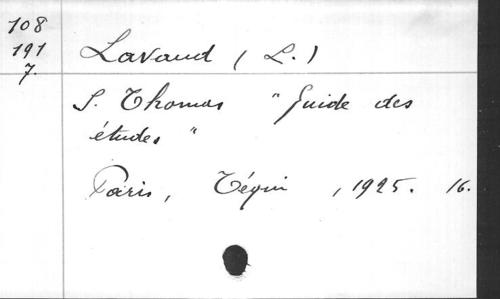 108
191
7.
Lavaud (L.)
S. Thomas "Guide des
études"
Paris, Téqui, 1925. 16.